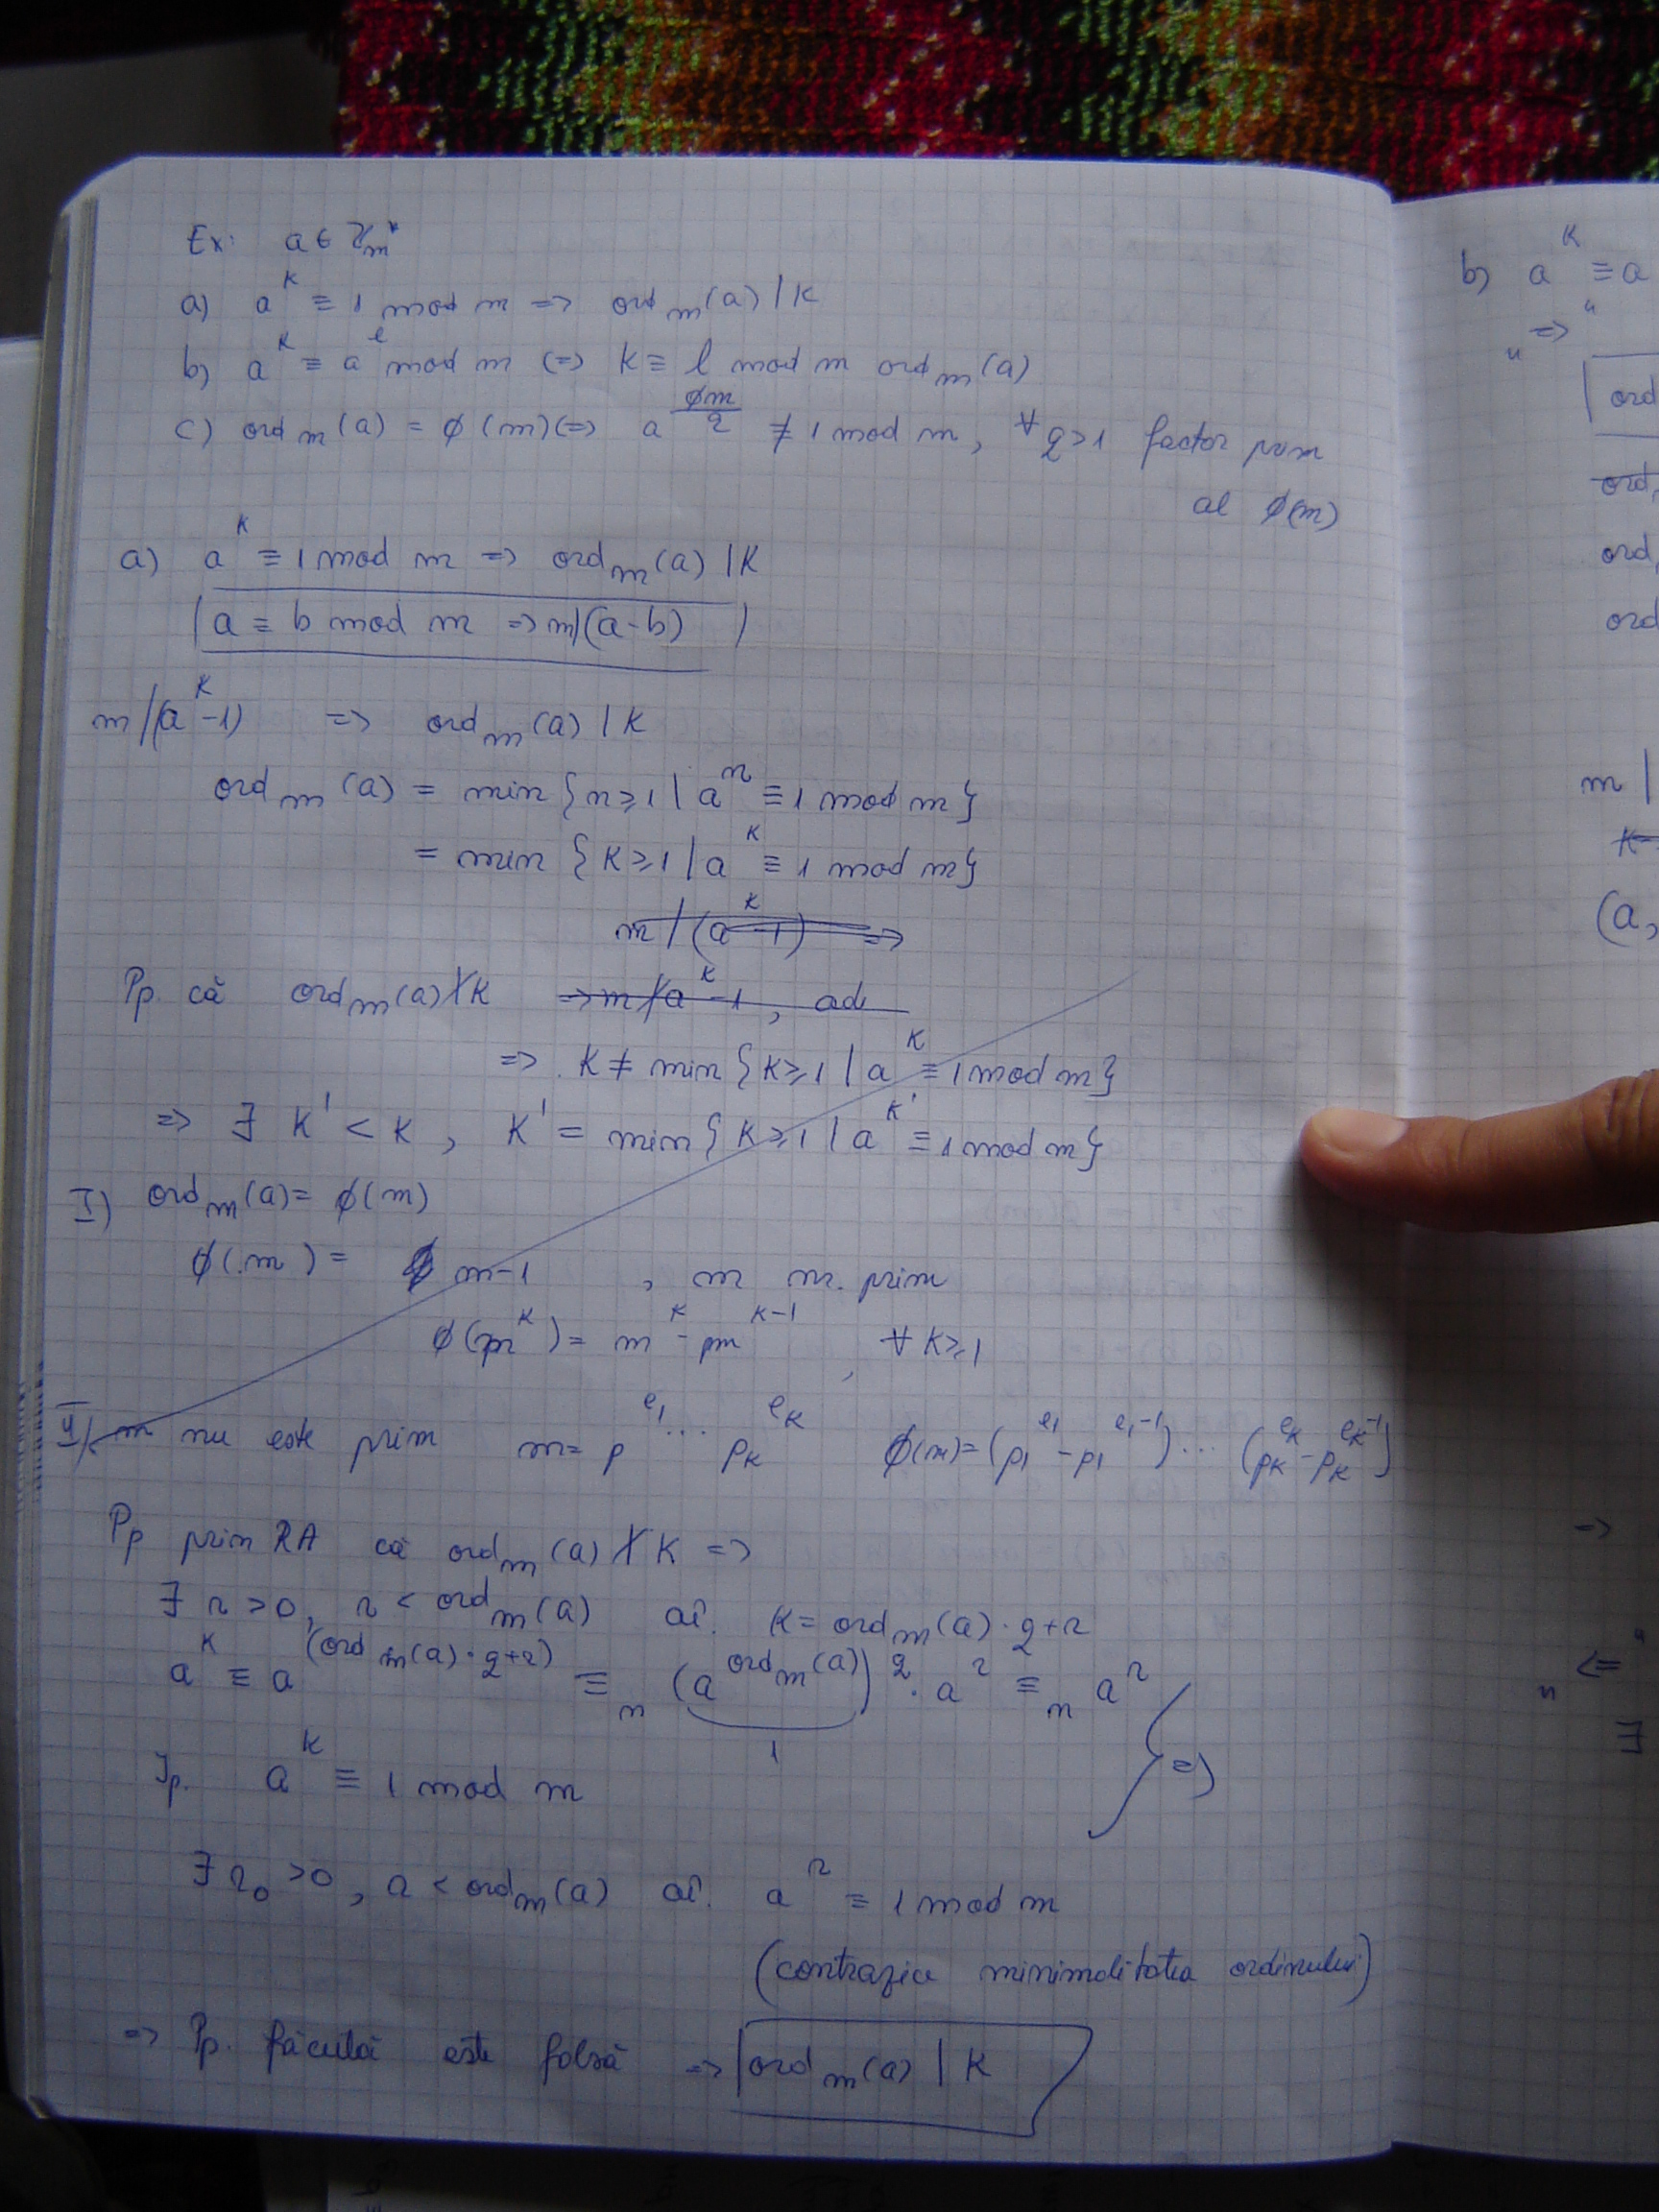 Ex: a ∈ Z_m^*
a) a^k ≡ 1 mod m => ord_m(a) | k
b) a^k ≡ a^l mod m <=> k ≡ l mod m ord_m(a)
c) ord_m(a) = ϕ(m) <=> a^(ϕm/q) ≠ 1 mod m, ∀ q>1 factor prim
al ϕ(m)
a) a^k ≡ 1 mod m => ord_m(a) | k
(a ≡ b mod m => m|(a-b))
m | (a^k-1) => ord_m(a) | k
ord_m(a) = min {n≥1 | a^n ≡ 1 mod m}
= min {k≥1 | a^k ≡ 1 mod m}
m | (a^k-1) =>
Pp. că ord_m(a) ∤ k => m ∤ a^k-1, adi
=> k ≠ min {k≥1 | a^k ≡ 1 mod m}
=> ∃ k' < k, k' = min {k≥1 | a^k' ≡ 1 mod m}
I) ord_m(a) = ϕ(m)
ϕ(m) = m-1, m nr. prim
ϕ(m^k) = m^k - m^(k-1), ∀ k≥1
II) m nu este prim m = p^e1 ... p_k^ek ϕ(m) = (p1^e1 - p1^(e1-1)) ... (pk^ek - pk^(ek-1))
Pp prin RA că ord_m(a) ∤ k =>
∃ r>0, r < ord_m(a) aî. k = ord_m(a)·q+r
a^k ≡ a^(ord_m(a)·q+r) ≡_n (a^ord_m(a))^q · a^r ≡_n a^r
1
Ip. a^k ≡ 1 mod m } =>
∃ r_0 >0, r < ord_m(a) aî. a^r ≡ 1 mod m
(contrazice minimalitatea ordinului)
=> Pp. făcută este falsă => ord_m(a) | k
b) a^k ≡ a
"=>"
ord
ord
ord
ord
m |
k
(a,
=>
"<="
∃